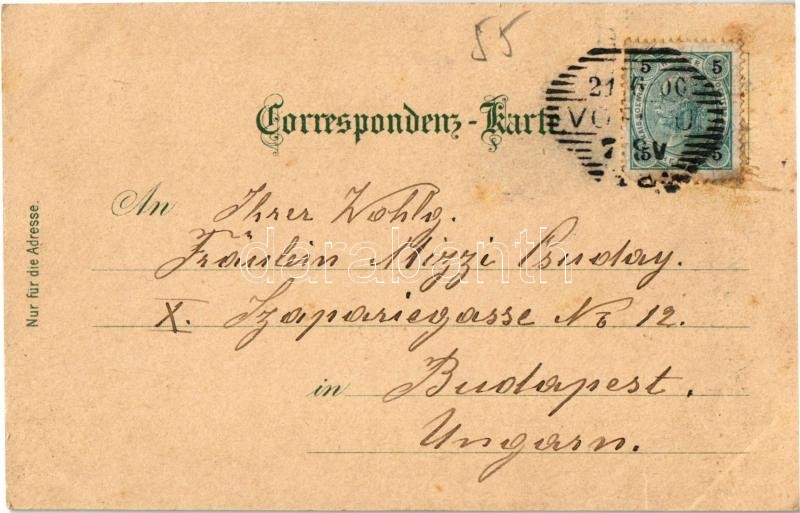 55
Correspondenz-Karte
21 6 00
5 5
5 5
An Ihrer Wohlg.
Fräulein Mizzi Buday.
X. Szapariegasse No 12.
in Budapest.
Ungarn.
Nur für die Adresse.
darabanth